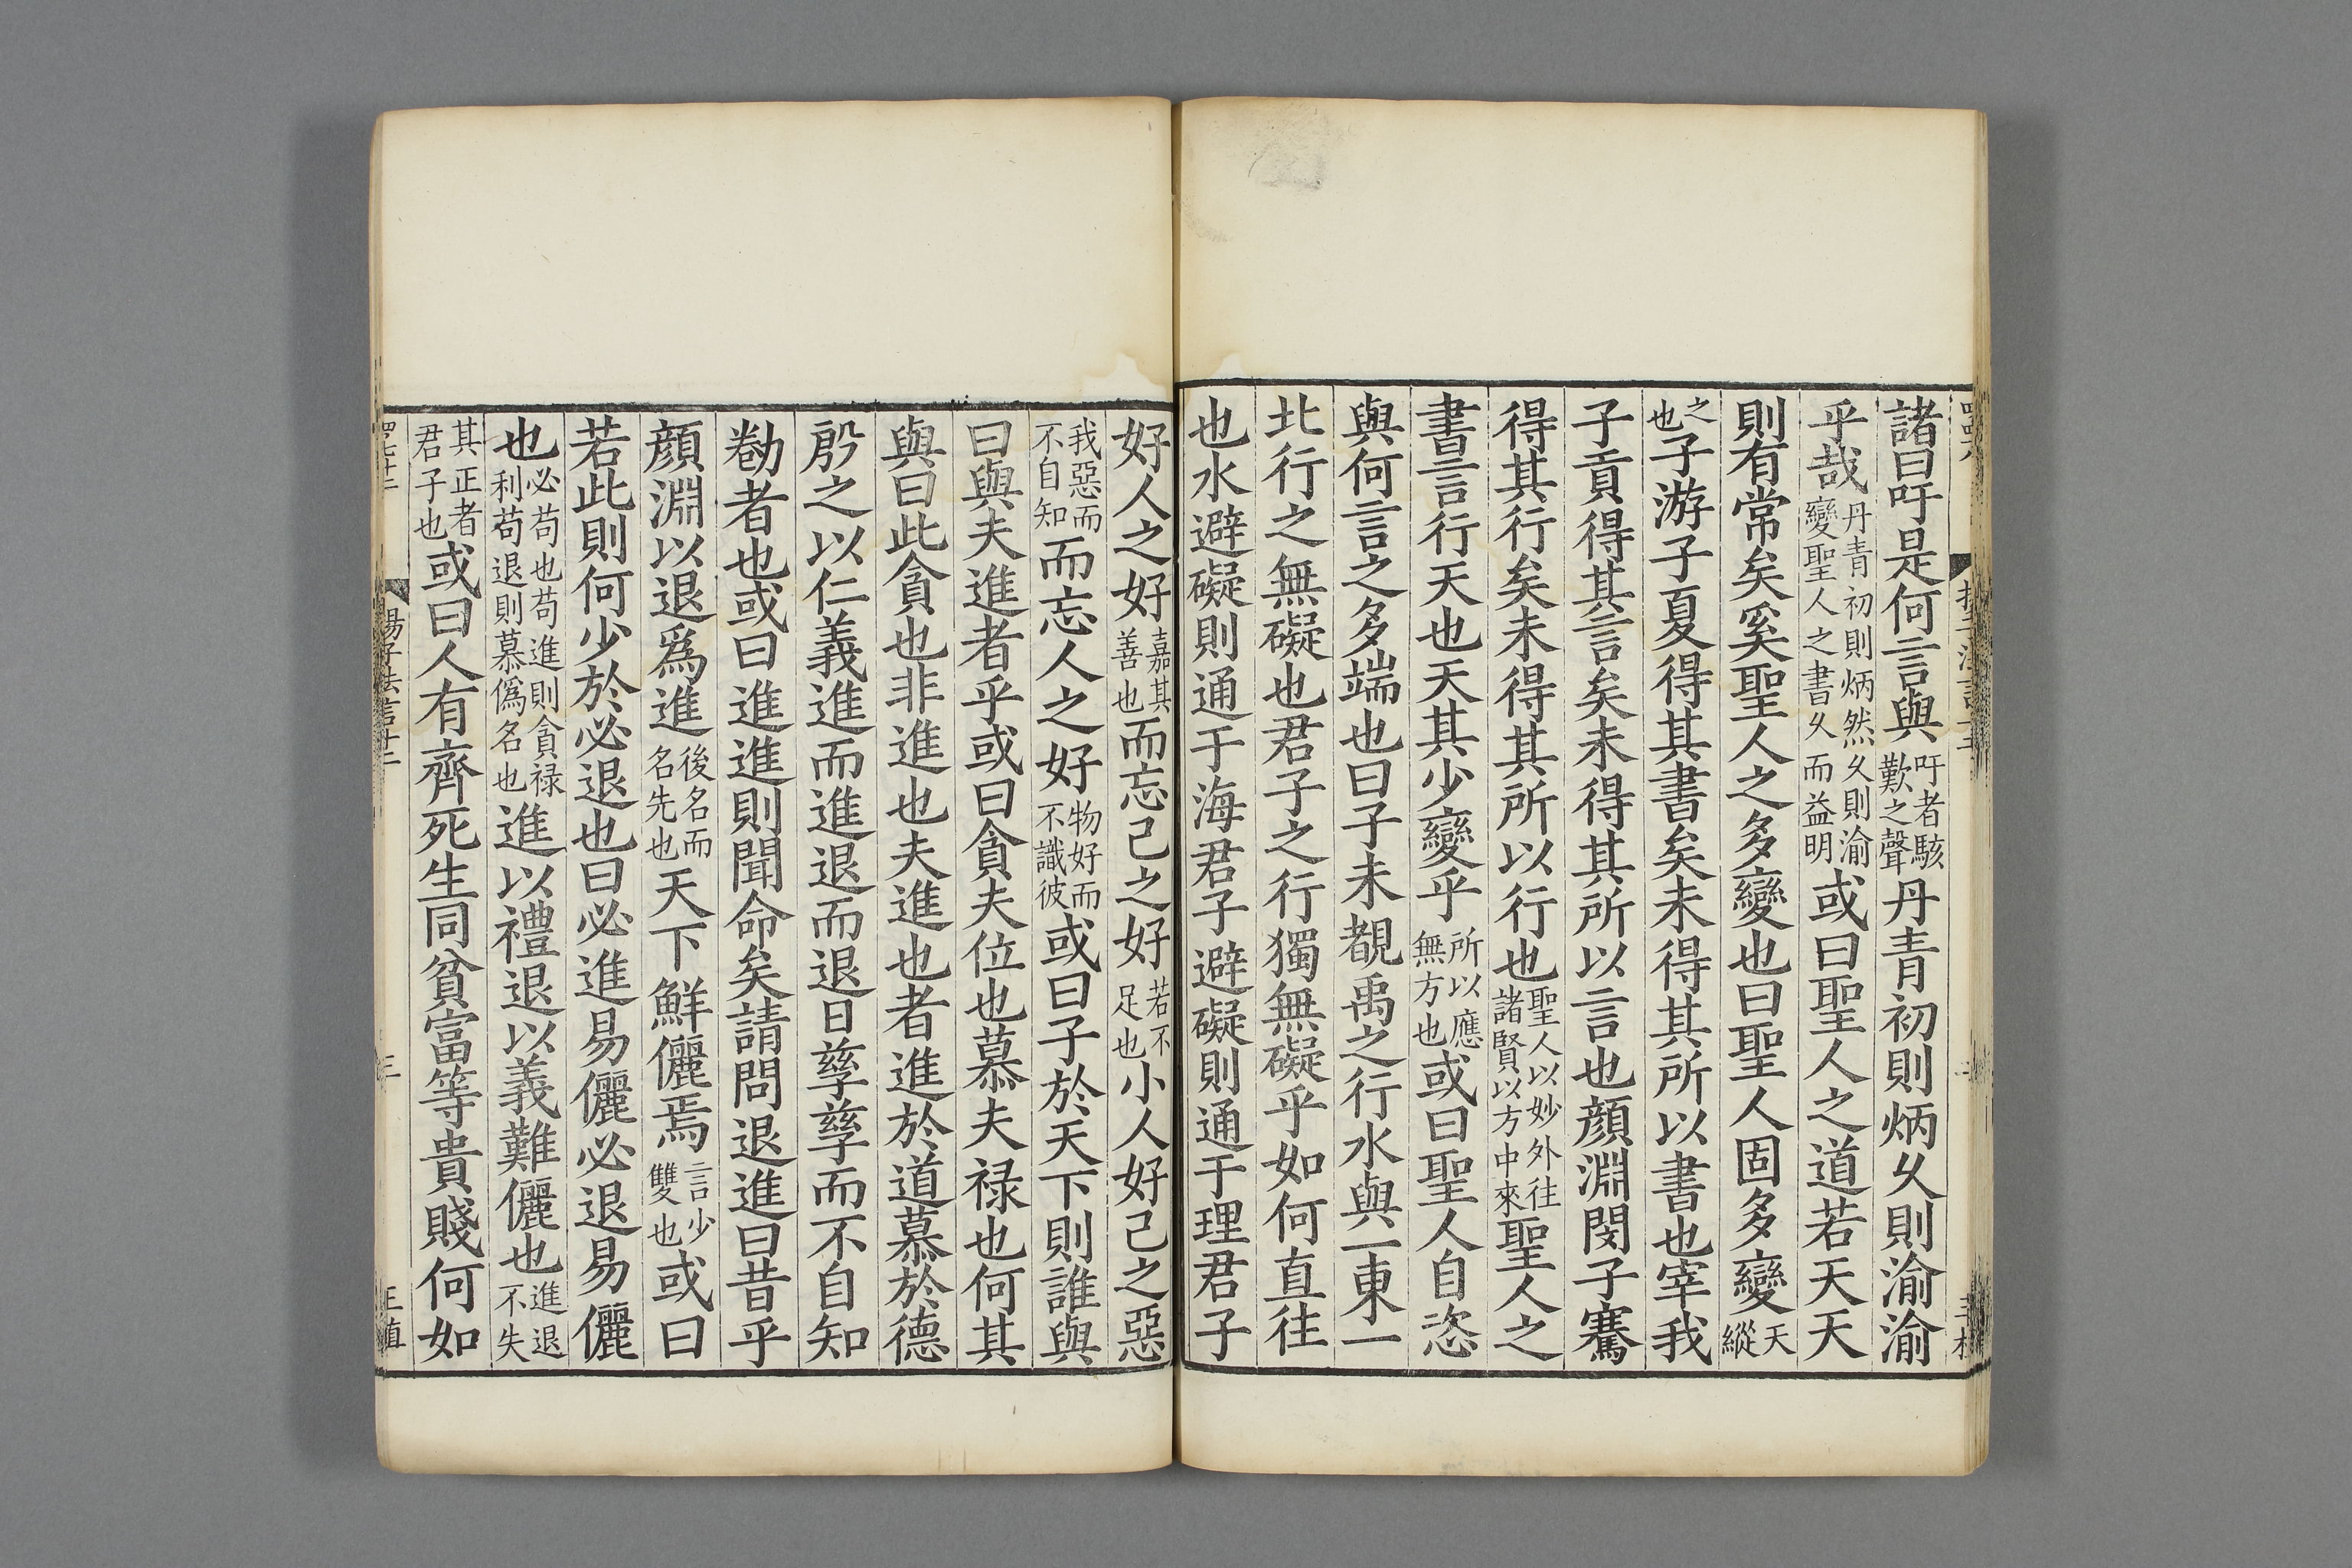 諸曰吁是何言與吁者駭歎之聲丹青初則炳久則渝渝
乎哉丹青初則炳然久則渝變聖人之書久而益明或曰聖人之道若天天
則有常矣奚聖人之多變也曰聖人固多變天縱
之也子游子夏得其書矣未得其所以書也宰我
子貢得其言矣未得其所以言也顏淵閔子騫
得其行矣未得其所以行也聖人以妙外往諸賢以方中來聖人之
書言行天也天其少變乎所以應無方也或曰聖人自恣
與何言之多端也曰子未覩禹之行水與一東一
北行之無礙也君子之行獨無礙乎如何直往
也水避礙則通于海君子避礙則通于理君子
好人之好嘉其善也而忘己之好若不足也小人好己之惡
我惡而不自知而忘人之好物好而不識彼或曰子於天下則誰與
曰與夫進者乎或曰貪夫位也慕夫禄也何其
與曰此貪也非進也夫進也者進於道慕於德
殷之以仁義進而進退而退日孳孳而不自知
勌者也或曰進進則聞命矣請問退進曰昔乎
顏淵以退爲進後名而名先也天下鮮儷焉言少雙也或曰
若此則何少於必退也曰必進易儷必退易儷
也必苟也苟進則貪禄利苟退則慕僞名也進以禮退以義難儷也進退不失
其正者君子也或曰人有齊死生同貧富等貴賤何如
揚子法言十二
三